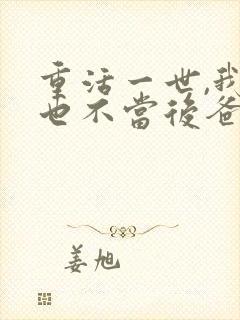 重活一世,我
也不當後爸
姜旭